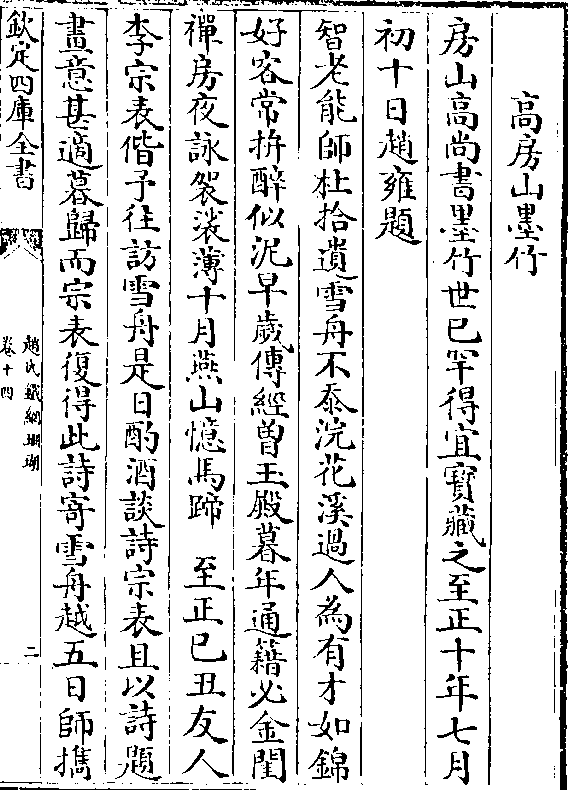 高房山墨竹
房山高尚書墨竹世已罕得宜寶藏之至正十年七月
初十日趙雍題
智老能師杜拾遺雪舟不忝浣花溪過人為有才如錦
好客常拚醉似泥早歲傳經曽玉殿暮年通籍必金閨
禪房夜詠袈裟薄十月燕山憶馬蹄　至正己丑友人
李宗表偕予往訪雪舟是日酌酒談詩宗表且以詩題
畫意甚適暮歸而宗表復得此詩寄雪舟越五日師携
欽定四庫全書
趙氏鐵網珊瑚
卷十四
二